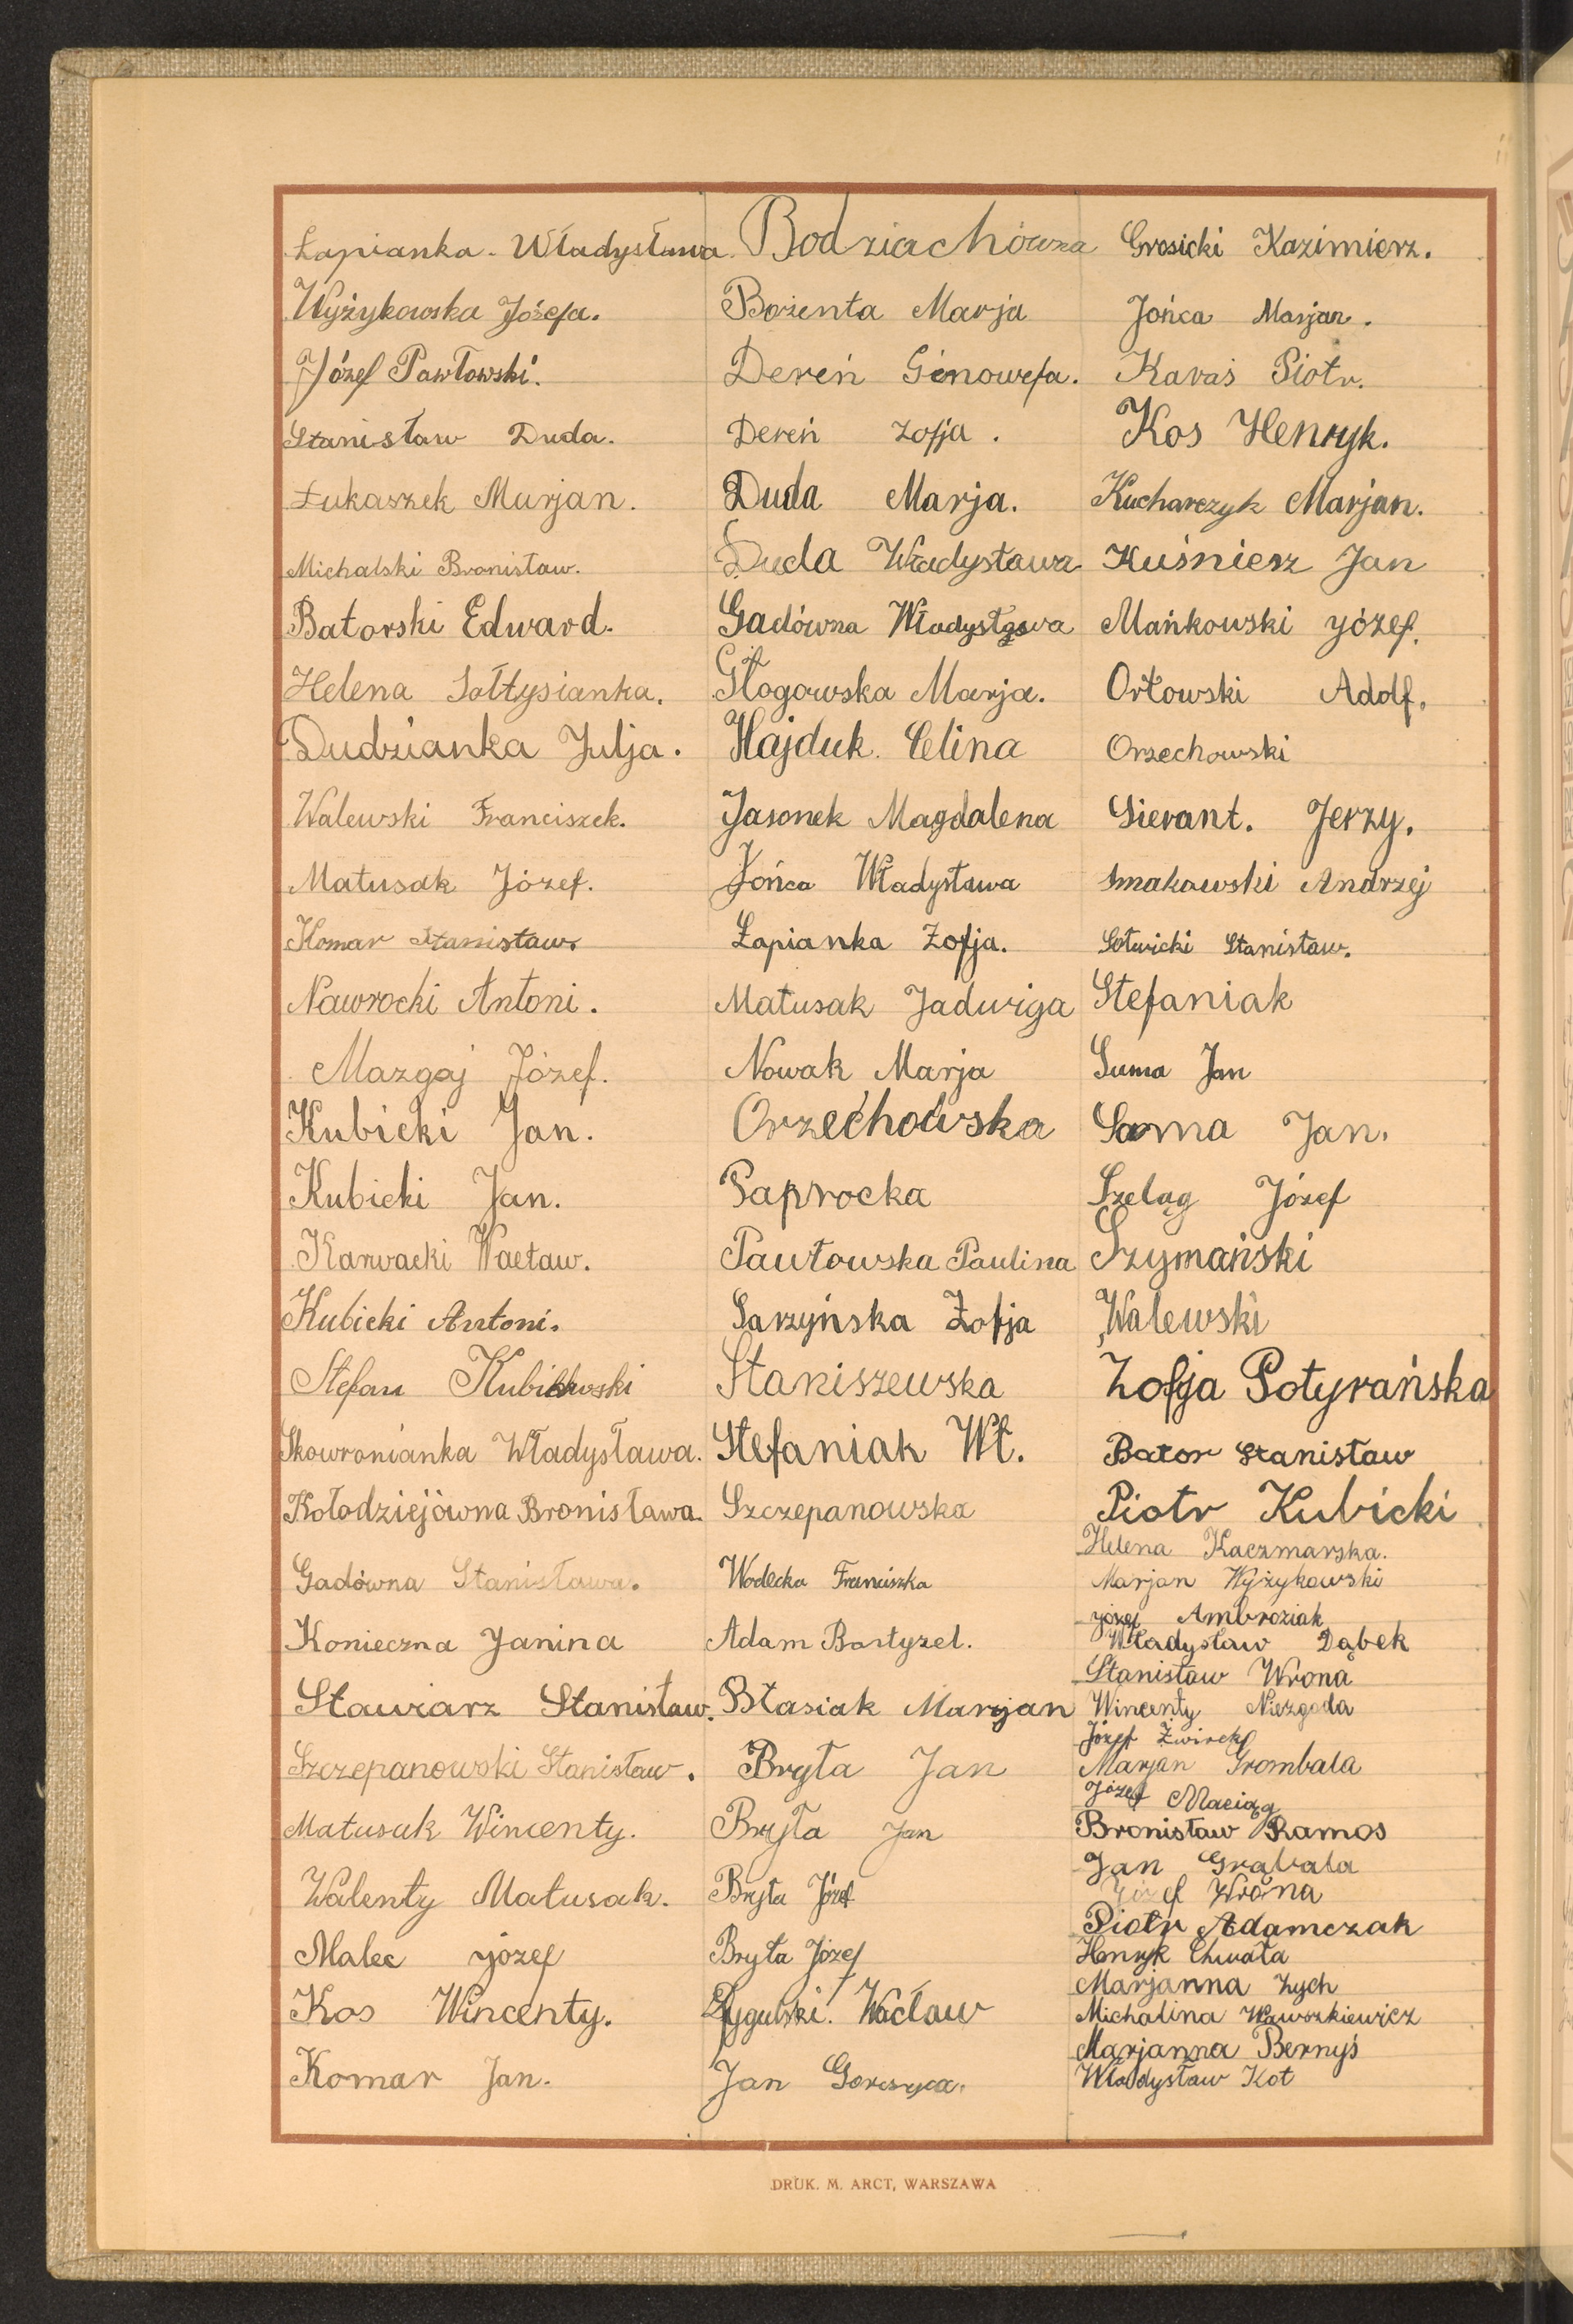 Łapianka. Władysława.
Wyżykowska Józefa.
Józef Pawłowski.
Stanisław Duda.
Łukaszek Marjan.
Michalski Bronisław.
Batorski Edward.
Helena Sołtysianka.
Dudzianka Julja.
Walewski Franciszek.
Matusak Józef.
Komar Stanisław.
Nawrocki Antoni.
Mazgaj Józef.
Kubicki Jan.
Kubicki Jan.
Karwacki Wacław.
Kubicki Antoni.
Stefan
Skowronianka Władysława.
Kołodziejówna Bronisława.
Gadówna Stanisława.
Konieczna Janina
Stawiarz Stanisław.
Szczepanowski Stanisław.
Matusak Wincenty.
Walenty Matusak.
Malec Józef
Kos Wincenty.
Komar Jan.
Bodziachówna
Bożenta Marja
Dereń Genowefa.
Dereń Zofja.
Duda Marja.
Duda Władysława
Gadówna Władysława
Głogowska Marja.
Hajduk. Celina
Jasonek Magdalena
Jońca Władysława
Łapianka Zofja.
Matusak Jadwiga
Nowak Marja
Orzechowska
Paprocka
Pawłowska Paulina
Sarzyńska Zofja
Staniszewska
Stefaniak Wł.
Szczepanowska
Wodecka Franciszka
Adam Bartyzel.
Błasiak Marjan
Bryła Jan
Bryła Jan
Bryła Józef
Bryła Józef
Dygulski. Wacław
Jan Gorczyca.
Grosicki Kazimierz.
Jońca Marjan.
Karaś Piotr.
Kos Henryk.
Kucharczyk Marjan.
Kuśnierz Jan
Mańkowski Józef.
Orłowski Adolf.
Orzechowski
Sierant. Jerzy.
Smakowski Andrzej
Sotwicki Stanisław.
Stefaniak
Suma Jan
Sama Jan.
Szeląg Józef
Szymański
Walewski
Zofja Potyrańska
Bator Stanisław
Piotr Kubicki
Helena Kaczmarska.
Marjan Wyżykowski
Józef Ambroziak
Władysław Dąbek
Stanisław Wrona
Wincenty Niezgoda
Józef Żwirek
Marjan Grombala
Józef Maciąg
Bronisław Ramos
Jan Grąbala
Józef Wrona
Piotr Adamczak
Henryk Chwała
Marjanna Zych
Michalina Wawszkiewicz
Marjanna Bernyś
Władysław Kot
DRUK. M. ARCT, WARSZAWA